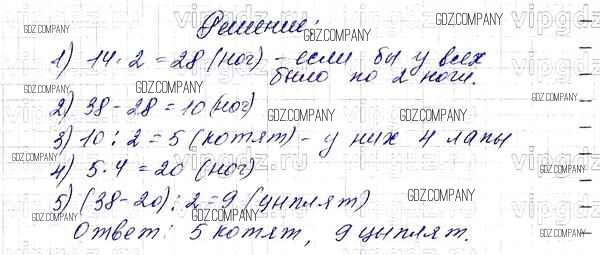 Решение:
1) 14·2=28 (ног) – если бы у всех
было по 2 ноги.
2) 38-28=10 (ног)
3) 10:2=5 (котят) – у них 4 лапы
4) 5·4=20 (ног)
5) (38-20):2=9 (цыплят)
Ответ: 5 котят, 9 цыплят.
GDZ.COMPANY
GDZ.COMPANY
GDZ.COMPANY
GDZ.COMPANY
GDZ.COMPANY
GDZ.COMPANY
GDZ.COMPANY
GDZ.COMPANY
GDZ.COMPANY
GDZ.COMPANY
GDZ.COMPANY
GDZ.COMPANY
vipgdz.ru
vipgdz.ru
vipgdz.ru